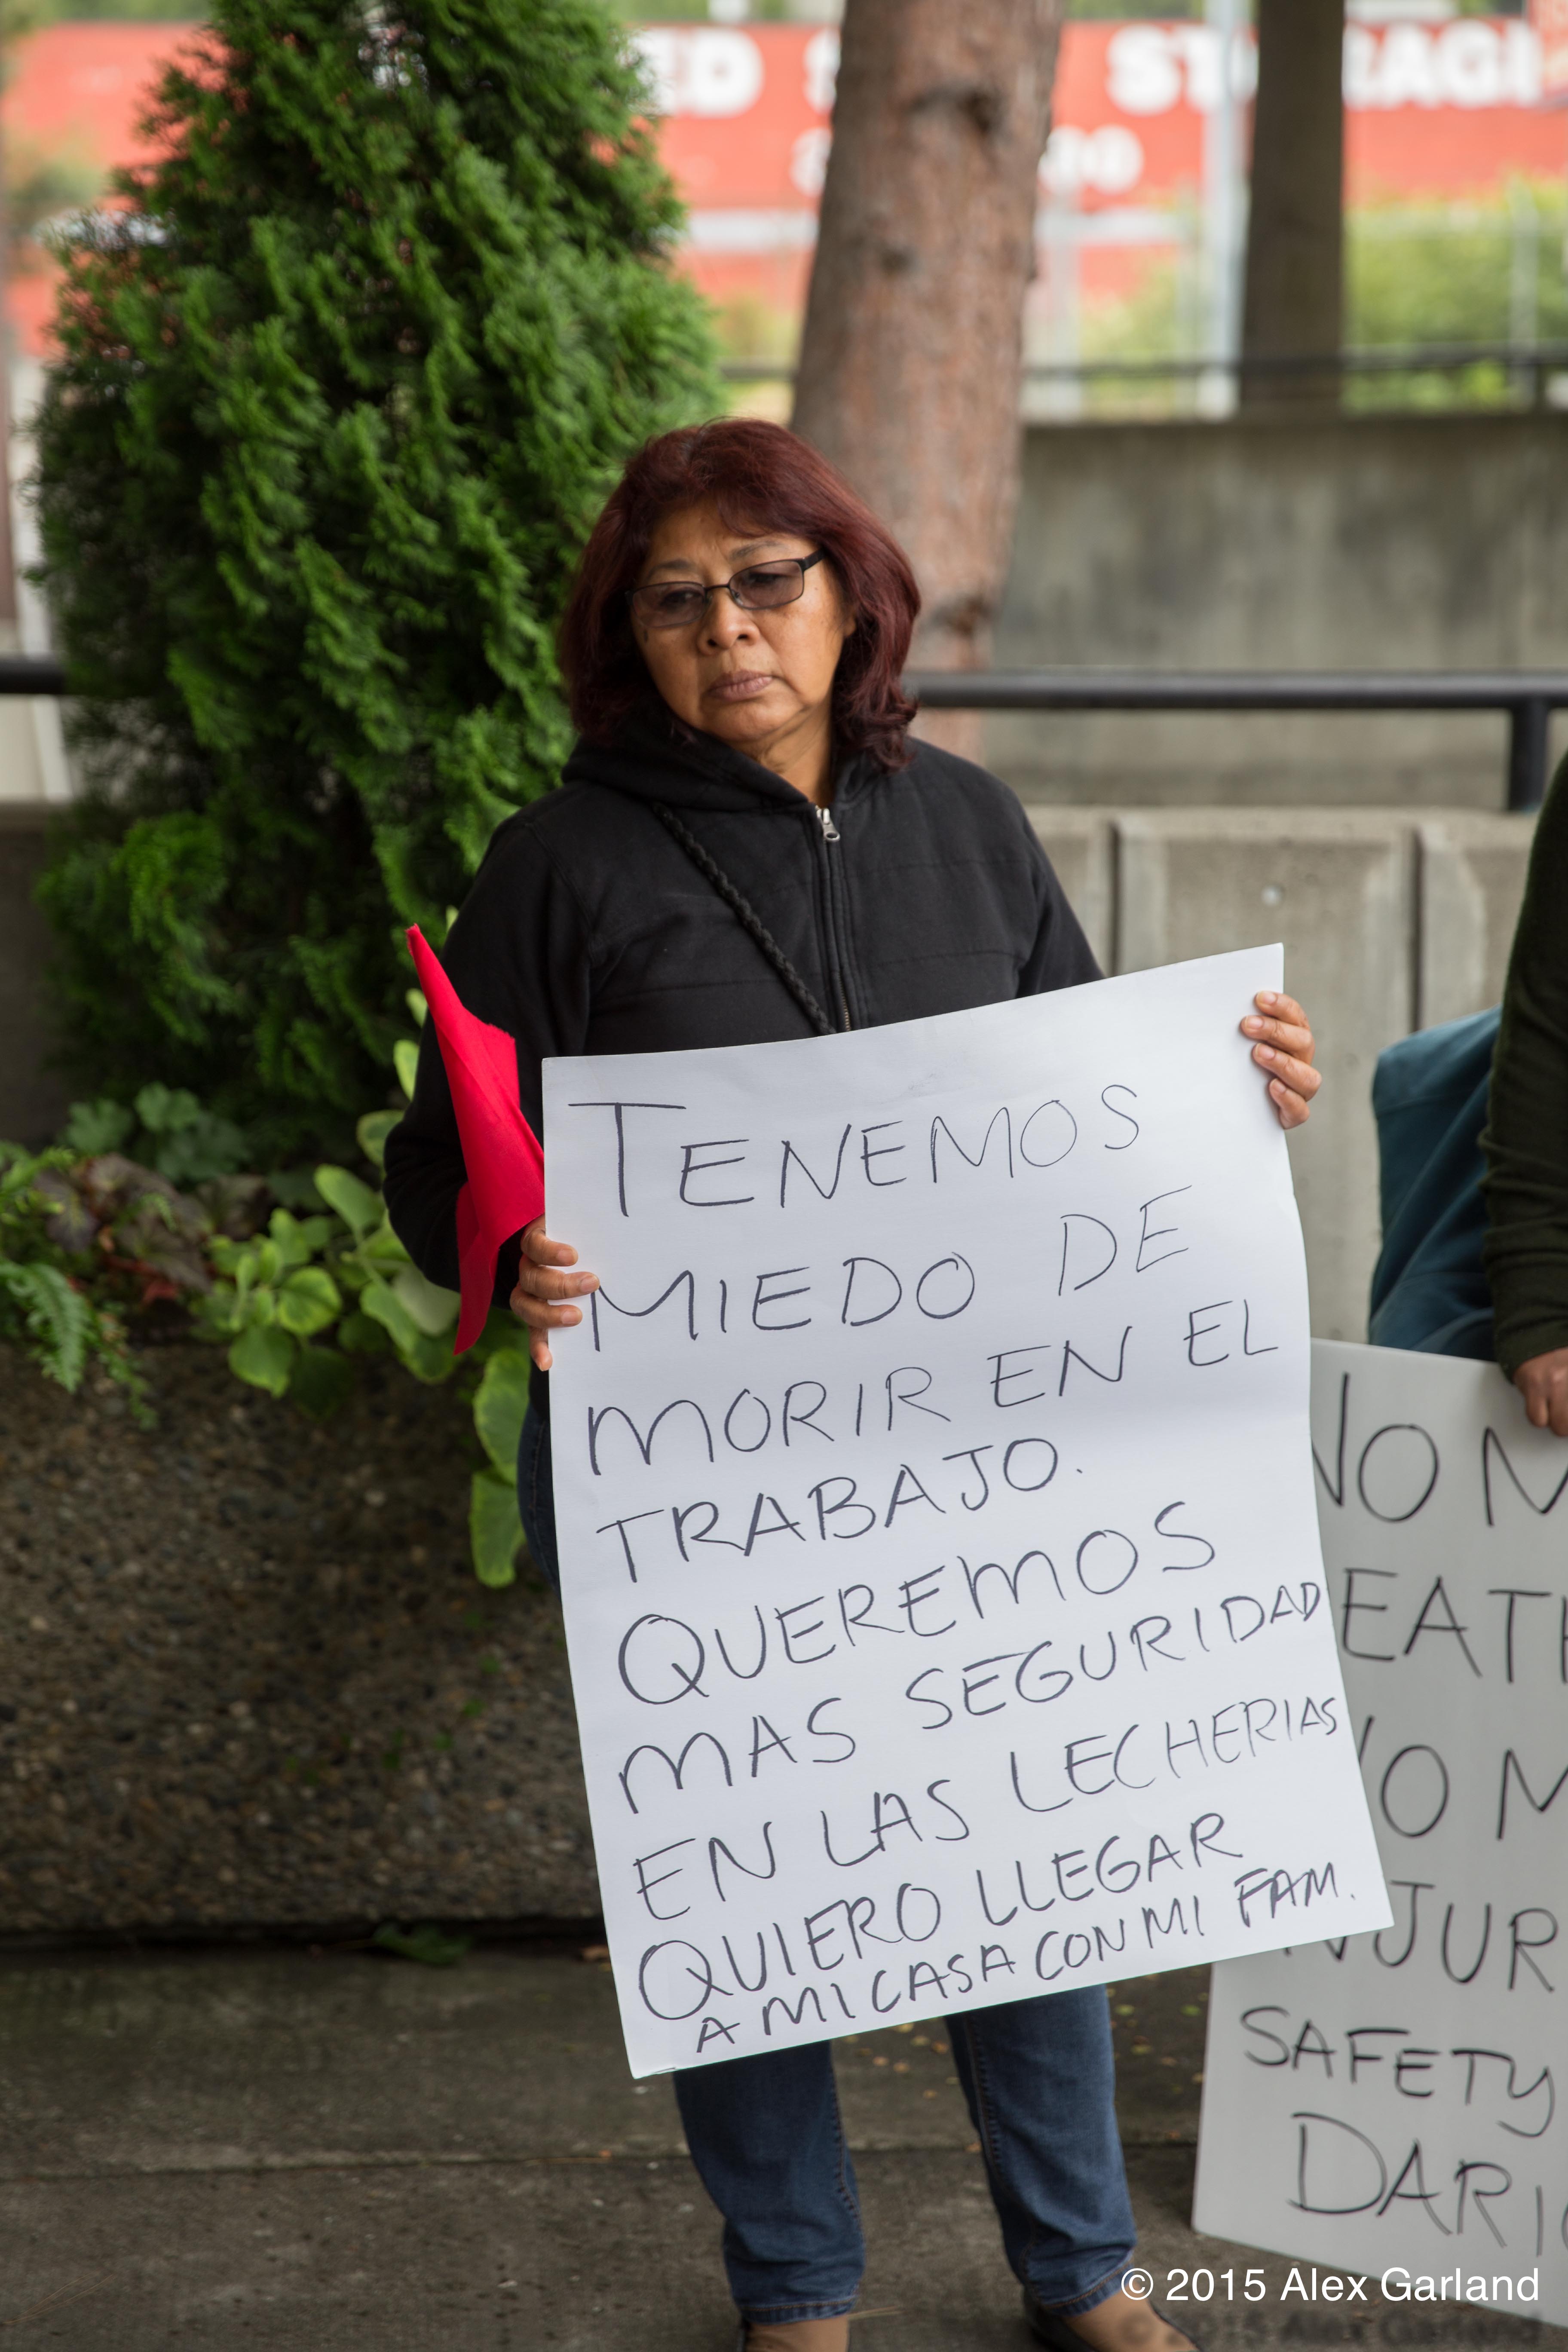 TENEMOS
MIEDO DE
MORIR EN EL
TRABAJO.
QUEREMOS
MAS SEGURIDAD
EN LAS LECHERIAS
QUIERO LLEGAR
A MI CASA CON MI FAM.
NO
NO
SAFETY
© 2015 Alex Garland